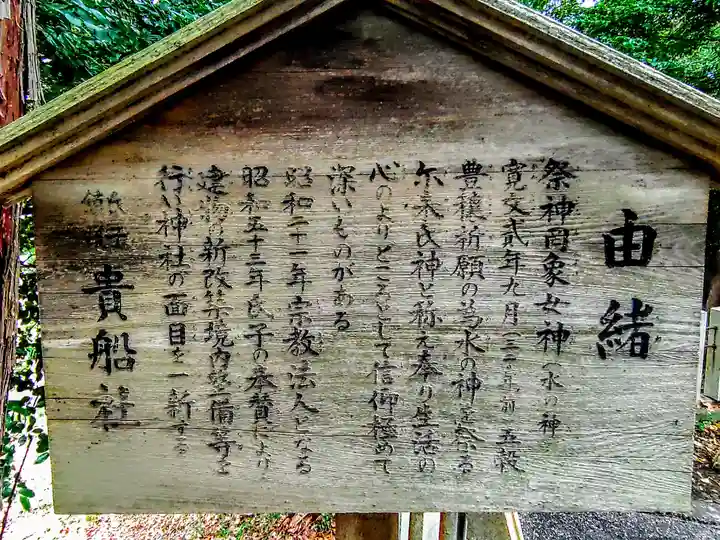 由緒
祭神罔象女神(水の神
寛文貮年九月(三二〇年前)五穀
豊穣祈願の為水の神を祭る
尓来氏神と称え奉り生活の
心のよりどころとして信仰極めて
深いものがある
昭和二十一年宗教法人となる
昭和五十三年氏子の奉賛により
建物の新改築境内整備等を
行い神社の面目を一新する
貴船社